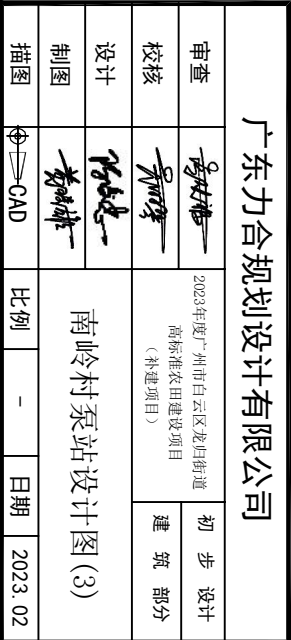 广东力合规划设计有限公司
审查
2023年度广州市白云区龙归街道
高标准农田建设项目
（补建项目）
初 步 设计
校核
建 筑 部分
设计
南岭村泵站设计图(3)
制图
描图 CAD 比例 - 日期 2023.02